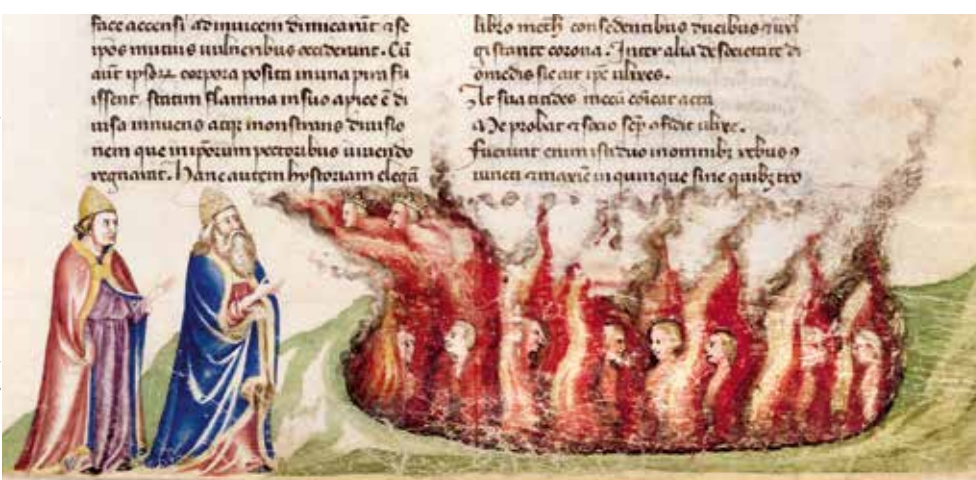 face accensi ad inuicem dimicarūt ⁊ se
ipos mutuis uulneribus occiderunt. Cū
aūt ipsoꝝ corpora posita in una pira fu
issent statim flamma in suo apice ē di
uisa innuens atqꝫ monstrans diuisio
nem que in ipōrum pectoribus uiuendo
regnauit. Hanc autem hystoriam elegā
libro meth̄ consedentibus ducibus ⁊ uul
gi stante corona. Inter alia de societate di
omedis sic ait ipē ulixes.
At sua titides mecū cōicat acta
Me probat ⁊ socio sēp cfidit ulixe.
Fuerunt enim isti duo in omnibꝫ rebus 9
iuncti ⁊ maxīe in quinque sine quibꝫ tro